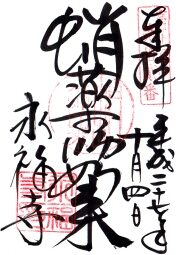 奉拝
平成二十七年
十月四日
蛸薬師如来
永福寺